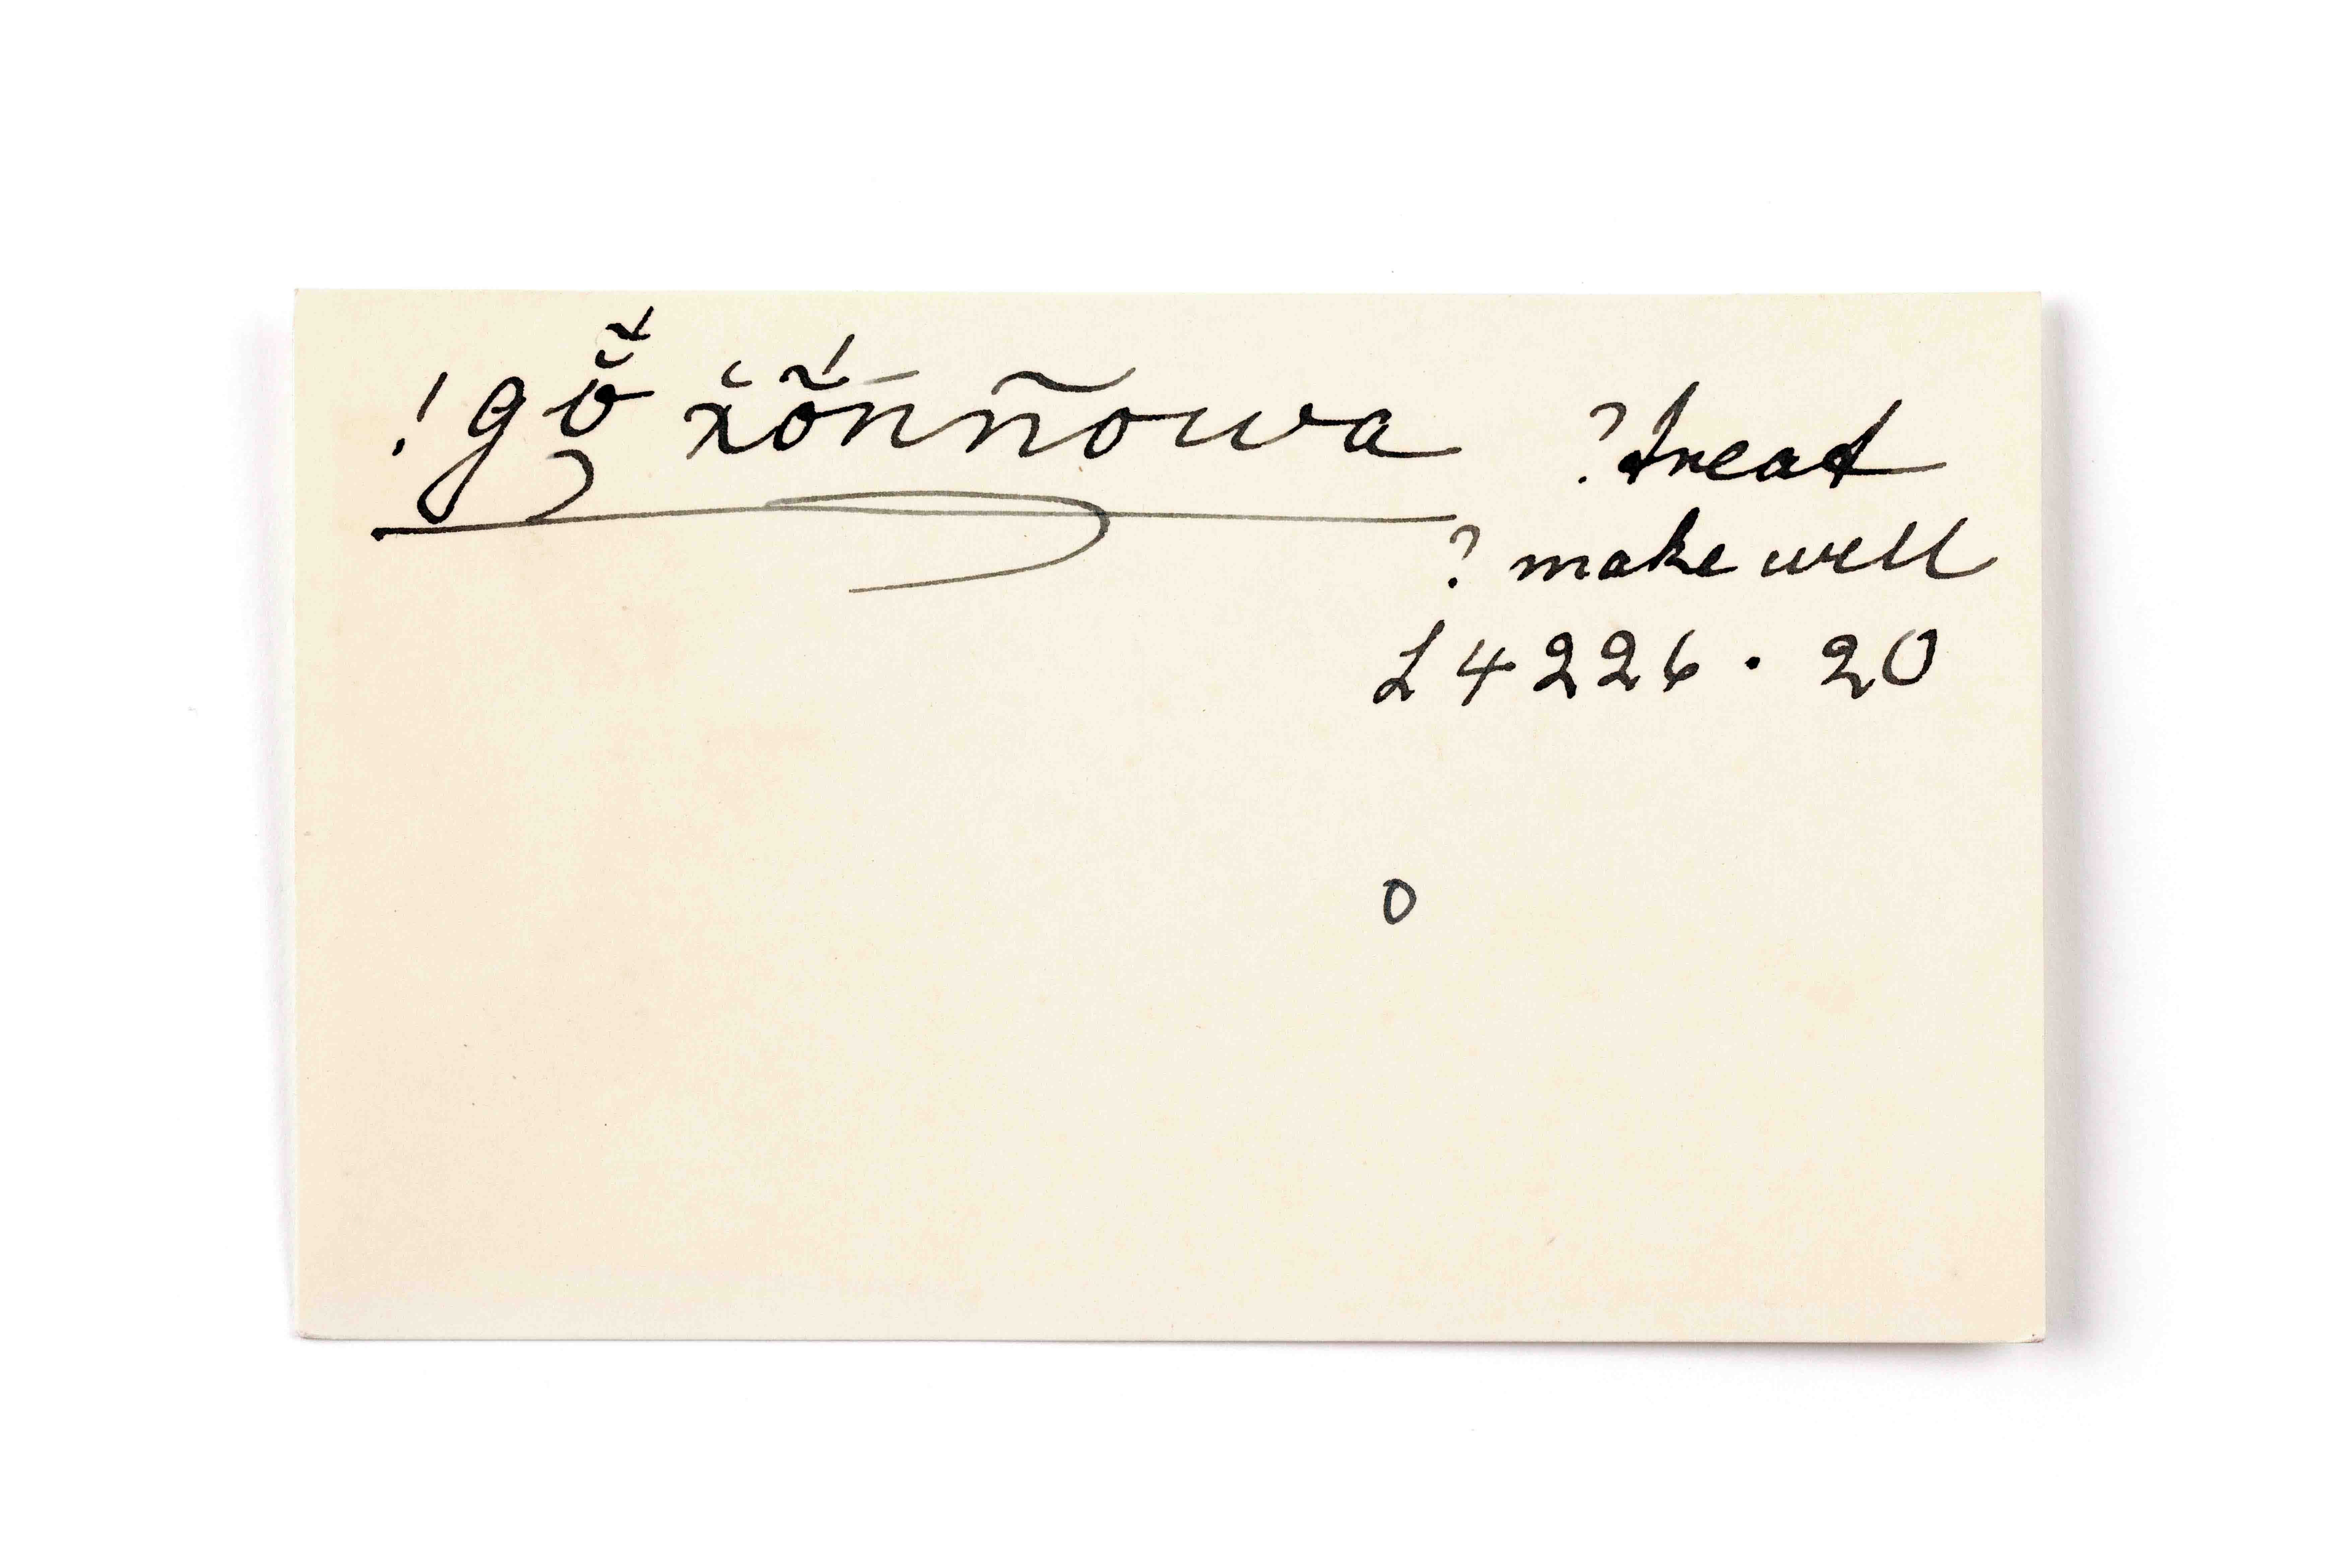 !gō̃́ x̆õ̆́n̄ñowa
?treat
? make well
L4226 · 20
0